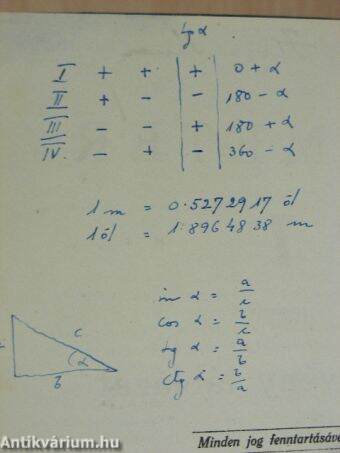 tg α
I + + + 0 + α
II + - - 180 - α
III - - + 180 + α
IV. - + - 360 - α
1 m = 0.5272917 öl
1 öl = 1.8964838 m
sin α = a/c
cos α = b/c
tg α = a/b
ctg α = b/a
c
α
b
Antikvárium.hu
Minden jog fenntartásáve